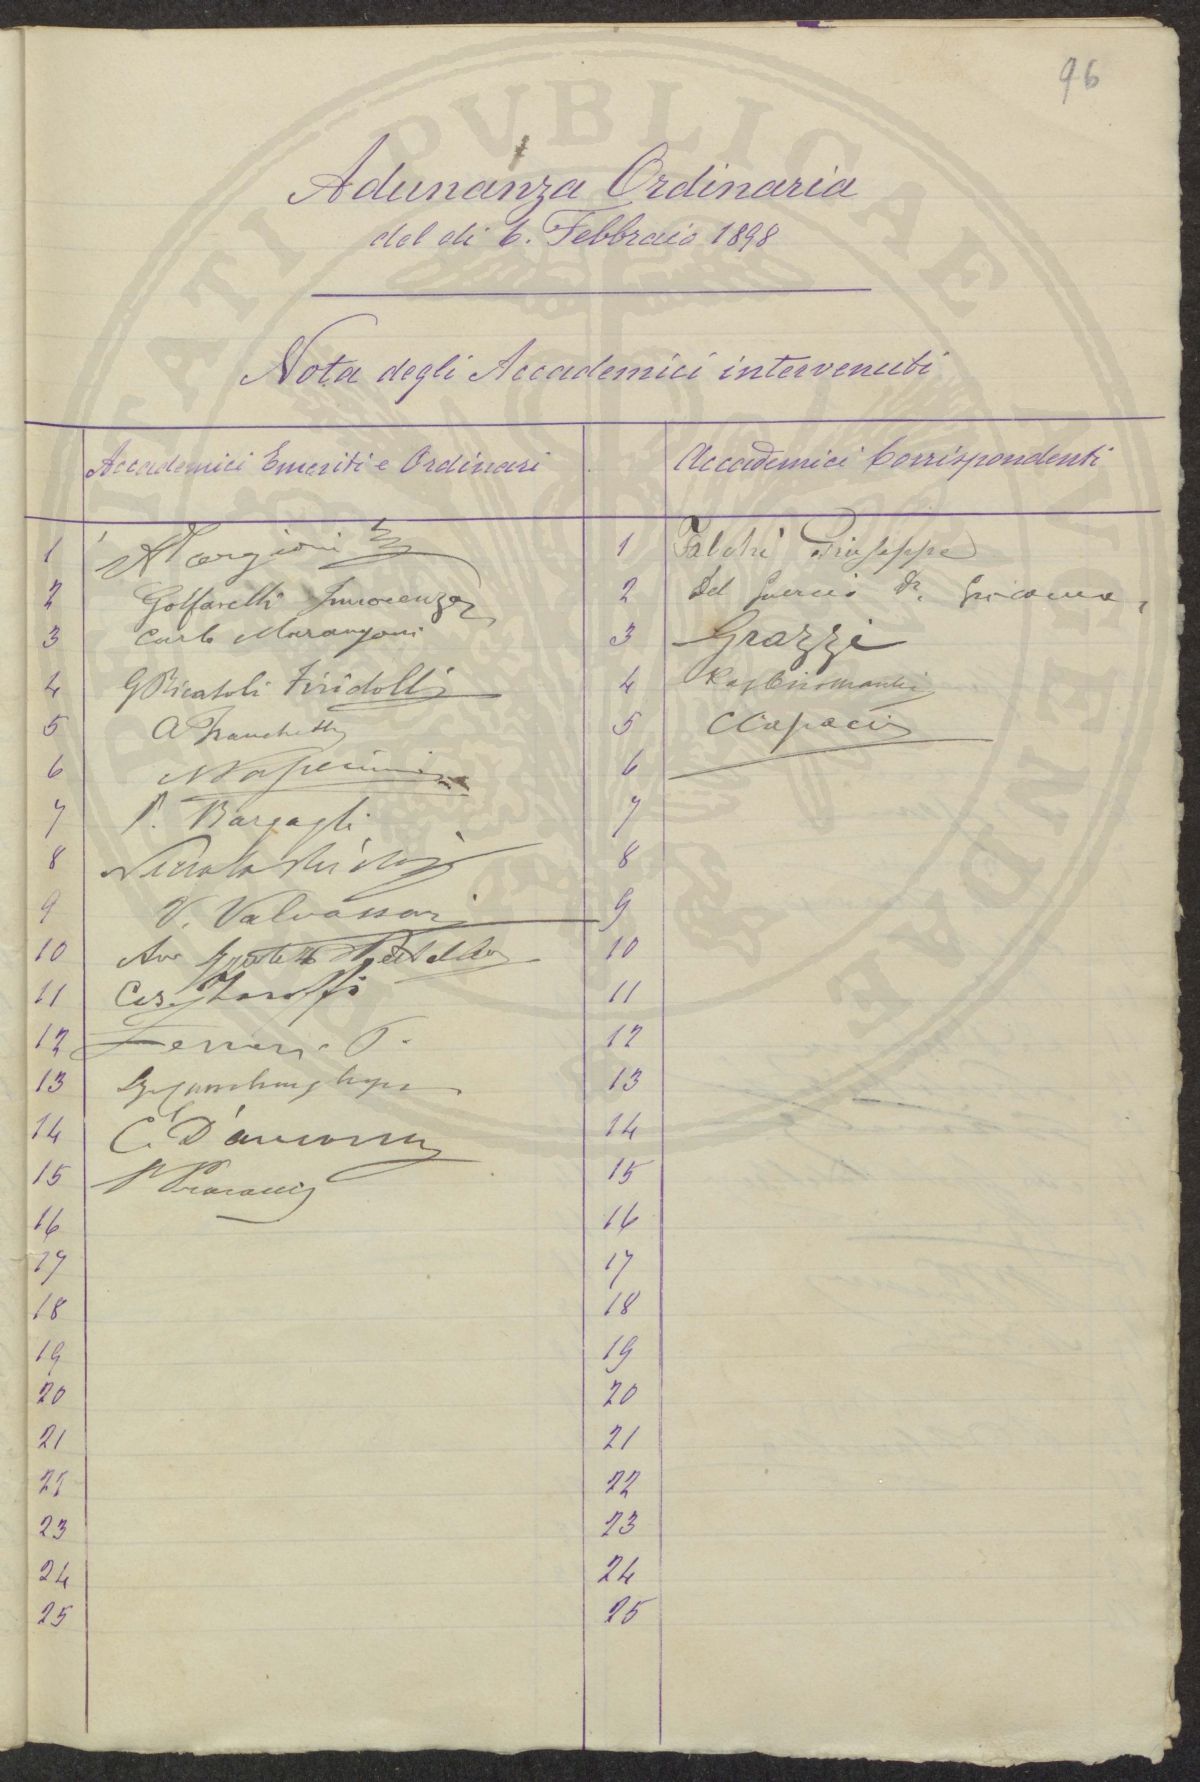 96
Adunanza Ordinaria
del di 6. Febbraio 1898
Nota degli Accademici intervenuti
Accademici Emeriti e Ordinari
Accademici Corrispondenti
1 Targioni
2 Golfarelli Innocenzo
3 Carlo Marangoni
4 G Ricasoli Firidolfi
5 A Franchetti
6
7 P. Bargagli
8 Niccolò Ridolfi
9 V. Valvassori
10 Avv
11 Ces.
12
13
14 C. D'Ancona
15
16
17
18
19
20
21
21
23
24
25
1 Falchi Giuseppe
2 Del Guercio Dr. Giacomo
3 Grazzi
4
5 Capacci
6
7
8
9
10
11
12
13
14
15
16
17
18
19
20
21
22
23
24
25
PUBLICAE
AUGENDAE